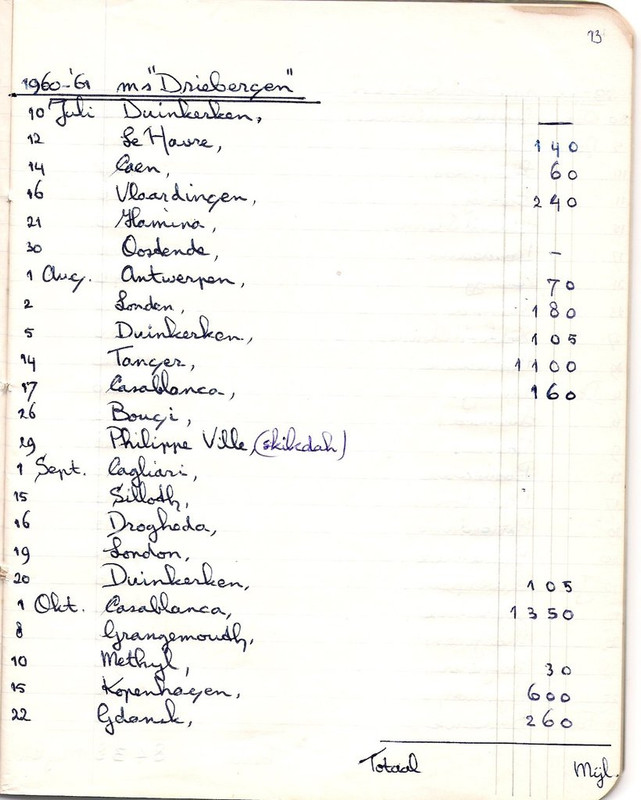 13
1960-'61 ms "Driebergen"
10 Juli Duinkerken, —
12 Le Havre, 140
14 Caen, 60
16 Vlaardingen, 240
21 Hamina,
30 Oostende, –
1 Aug. Antwerpen, 70
2 London, 180
5 Duinkerken, 105
14 Tanger, 1100
17 Casablanca, 160
26 Bougi,
29 Philippe Ville, (skikdah)
1 Sept. Cagliari,
15 Silloth,
16 Drogheda,
19 London,
20 Duinkerken, 105
1 Okt. Casablanca, 1350
8 Grangemouth,
10 Methyl, 30
15 Kopenhagen, 600
22 Gdansk, 260
Totaal Mijl.